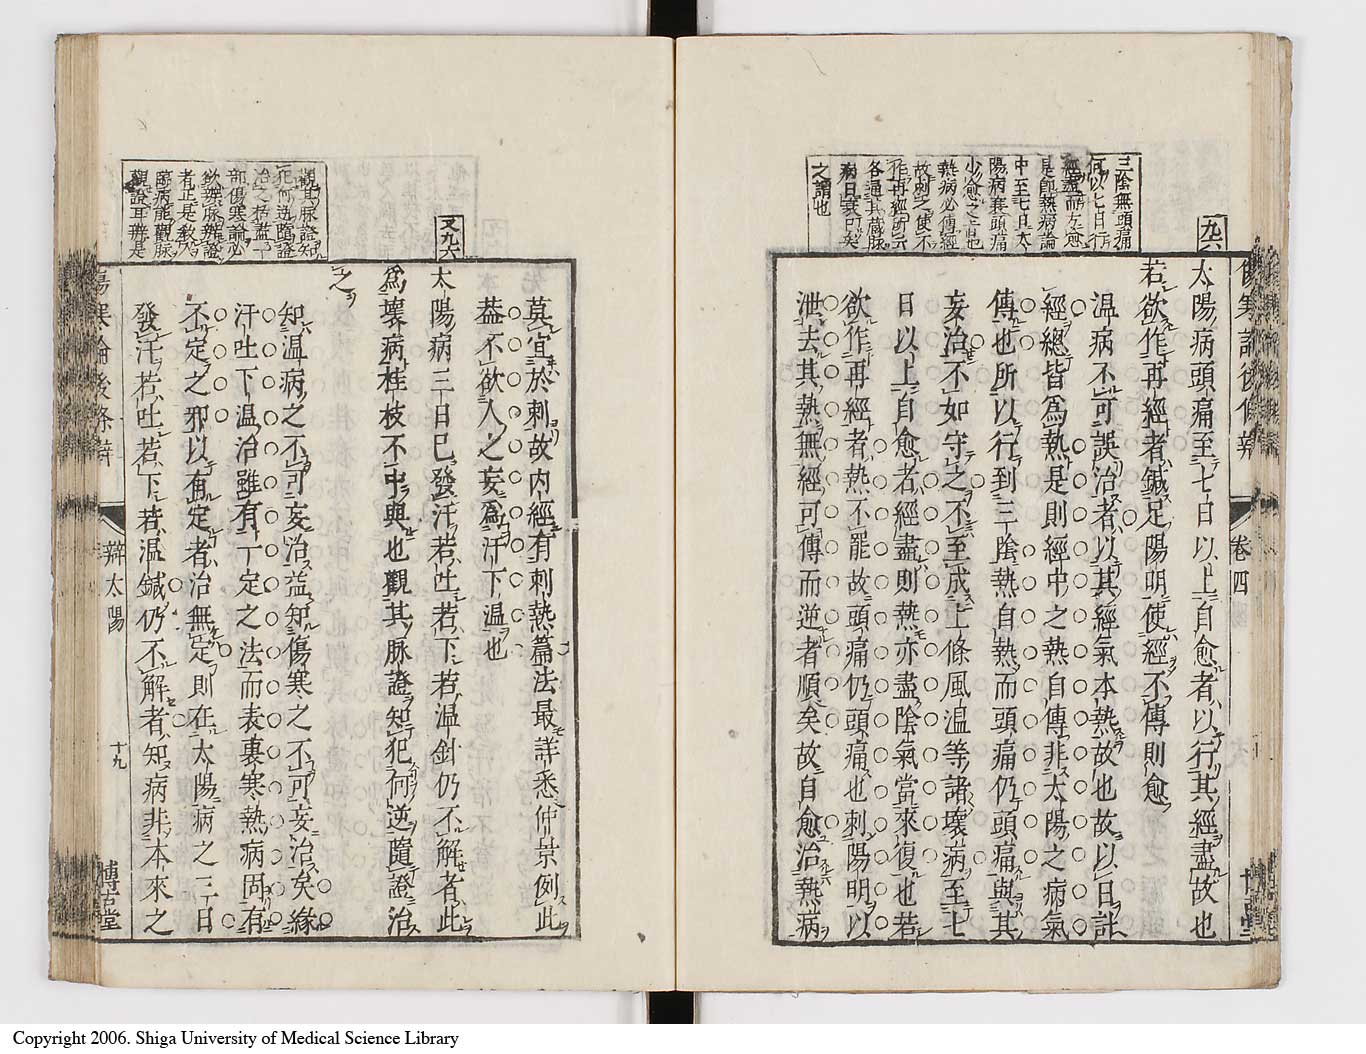 傷寒論後條辨
卷四
博古堂
九六
三陰無頭痛
何以七日行
經盡而左愈
是風熱病論
中至七日太
陽病衰頭痛
少愈之旨也
熱病必傳經
故刺之使不
作再經所六
各通其藏脉
病日衰已矣
之謂也
太陽病頭痛至七日以上自愈者以行其經盡故也
若欲作再經者鍼足陽明使經不傳則愈
温病不可誤治者以其經氣本熱故也故以日計
經總皆爲熱是則經中之熱自傳非太陽之病氣
傳也所以行到三陰熱自熱而頭痛仍頭痛與其
妄治不如守之不至成上條風温等諸壞病至七
日以上自愈者經盡則熱亦盡陰氣當來復也若
欲作再經者熱不罷故頭痛仍頭痛也刺陽明以
泄去其熱無經可傳而逆者順矣故自愈治熱病
莫宜於刺故内經有刺熱篇法最詳悉仲景例此
葢不欲人之妄爲汗下温也
又九六
太陽病三日已發汗若吐若下若温針仍不解者此
爲壞病桂枝不中與也觀其脉證知犯何逆隨證治
之
觀其脉證知
犯何逆隨證
治之括盡一
部傷寒論必
欲辨脉辨證
者正是教人
臨病能觀脉
觀證耳辨是
知温病之不可妄治益知傷寒之不可妄治矣緣
汗吐下温治雖有一定之法而表裏寒熱病固有
不定之邪以有定者治無定則在太陽病之三日
發汗若吐若下若温鍼仍不解者知病非本來之
傷寒論後條辨
辨太陽
十九
博古堂
Copyright 2006. Shiga University of Medical Science Library